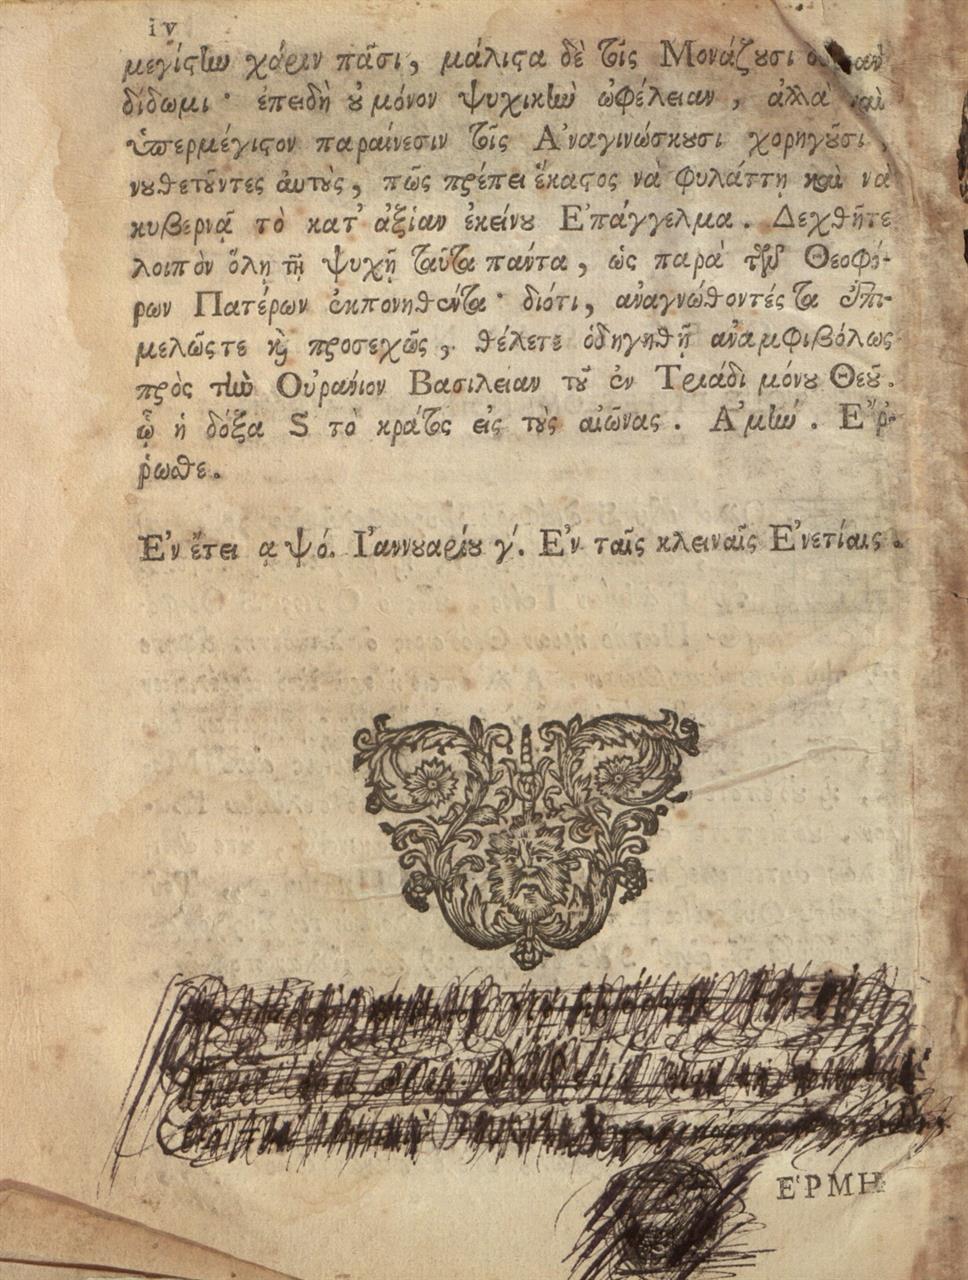 iv
μεγίστὼ χάριν πᾶσι, μάλιστα δὲ τοῖς Μονάζουσι
δίδωμι· ἐπειδὴ οὐ μόνον ψυχικὼ ὠφέλειαν, ἀλλὰ καὶ
ὑπερμέγιστον παραίνεσιν τοῖς Ἀναγινώσκουσι χορηγοῦσι,
νουθετοῦντες αὐτοὺς, πῶς πρέπει ἕκαστος νὰ φυλάττῃ καὶ νὰ
κυβερνᾷ τὸ κατ' ἀξίαν ἐκείνου Ἐπάγγελμα. Δεχθῆτε
λοιπὸν ὅλῃ τῇ ψυχῇ ταῦτα πάντα, ὡς παρὰ τῶν Θεοφό-
ρων Πατέρων ἐκπονηθέντα· διότι, ἀναγνώθοντές τα ἐπι-
μελῶς τε καὶ προσεχῶς, θέλετε ὁδηγηθῇ ἀναμφιβόλως
πρὸς τὼ Οὐράνιον Βασιλείαν τοῦ ἐν Τριάδι μόνου Θεοῦ.
ᾧ ἡ δόξα ϗ τὸ κράτος εἰς τοὺς αἰῶνας. Ἀμὼ. Ἔῤ-
ῥωσθε.
Ἐν ἔτει αψό. Ἰαννουαρίου γ'. Ἐν ταῖς κλειναῖς Ἐνετίαις.
ἙΡΜΗ